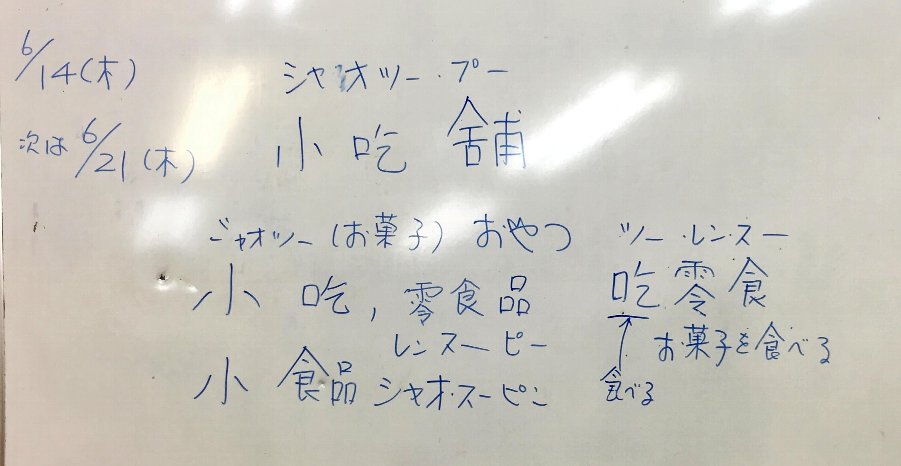 6/14(木) シャオツー・プー
次は 6/21(木) 小吃 舗
シャオツー(お菓子) おやつ ツー・レンスー
小 吃, 零食品 吃零食
レンスーピー お菓子を食べる
小 食品 シャオ・スーピン 食べる